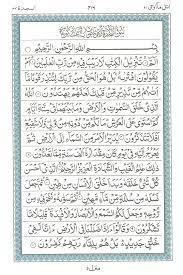 بِسْمِ اللهِ الرَّحْمٰنِ الرَّحِيْمِ
الٓمّٓ تَنْزِيْلُ الْكِتٰبِ لَا رَيْبَ فِيْهِ مِنْ رَّبِّ الْعٰلَمِيْنَ اَمْ
يَقُوْلُوْنَ افْتَرٰىهُ بَلْ هُوَ الْحَقُّ مِنْ رَّبِّكَ لِتُنْذِرَ قَوْمًا مَّآ
اَتٰىهُمْ مِّنْ نَّذِيْرٍ مِّنْ قَبْلِكَ لَعَلَّهُمْ يَهْتَدُوْنَ اَللهُ الَّذِيْ
خَلَقَ السَّمٰوٰتِ وَالْاَرْضَ وَمَا بَيْنَهُمَا فِيْ سِتَّةِ اَيَّامٍ ثُمَّ
اسْتَوٰى عَلَى الْعَرْشِ مَا لَكُمْ مِّنْ دُوْنِهٖ مِنْ وَّلِيٍّ وَّلَا
شَفِيْعٍ اَفَلَا تَتَذَكَّرُوْنَ يُدَبِّرُ الْاَمْرَ مِنَ السَّمَآءِ اِلَى الْاَرْضِ
ثُمَّ يَعْرُجُ اِلَيْهِ فِيْ يَوْمٍ كَانَ مِقْدَارُهٗٓ اَلْفَ سَنَةٍ مِّمَّا
تَعُدُّوْنَ ذٰلِكَ عٰلِمُ الْغَيْبِ وَالشَّهَادَةِ الْعَزِيْزُ الرَّحِيْمُ الَّذِيْٓ اَحْسَنَ
كُلَّ شَيْءٍ خَلَقَهٗ وَبَدَاَ خَلْقَ الْاِنْسَانِ مِنْ طِيْنٍ ثُمَّ جَعَلَ
نَسْلَهٗ مِنْ سُلٰلَةٍ مِّنْ مَّآءٍ مَّهِيْنٍ ثُمَّ سَوّٰىهُ وَنَفَخَ فِيْهِ مِنْ
رُّوْحِهٖ وَجَعَلَ لَكُمُ السَّمْعَ وَالْاَبْصَارَ وَالْاَفْئِدَةَ قَلِيْلًا مَّا
تَشْكُرُوْنَ وَقَالُوْٓا ءَاِذَا ضَلَلْنَا فِي الْاَرْضِ ءَاِنَّا لَفِيْ
خَلْقٍ جَدِيْدٍ بَلْ هُمْ بِلِقَآءِ رَبِّهِمْ كٰفِرُوْنَ